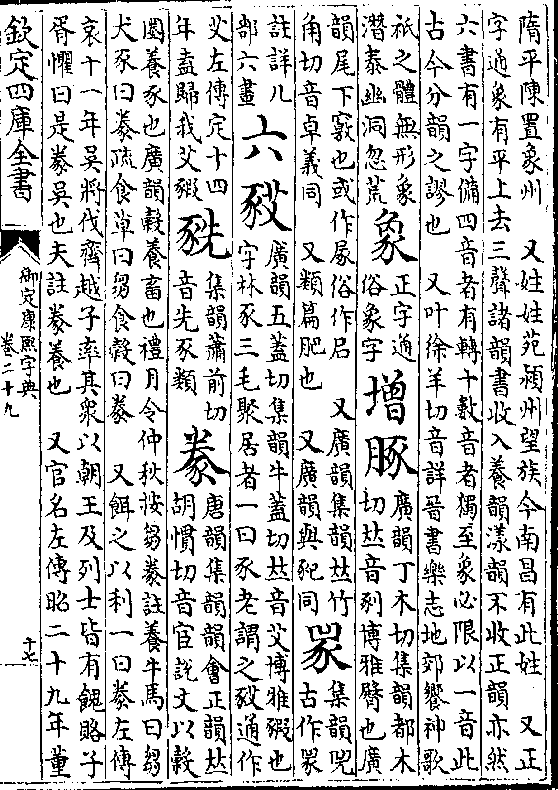 隋平陳置象州　又姓姓苑潁州望族今南昌有此姓　又正
字通象有平上去三聲諸韻書收入養韻漾韻不收正韻亦然
六書有一字備四音者有轉十數音者獨至象必限以一音此
古今分韻之謬也　又叶徐羊切音詳晉書樂志地郊饗神歌
祇之體無形象
潛泰幽洞忽荒
𧰼
正字通
俗象字
增
豚
廣韻丁木切集韻都木
切𠀤音㓸博雅臀也廣
韻尾下竅也或作㞘俗作𡰪　又廣韻集韻𠀤竹
角切音卓義同　又類篇肥也　又廣韻與㹠同
𧰽
集韻兕
古作𧰽
註詳儿
部六畫
六
䝘
廣韻五蓋切集韻牛蓋切𠀤音艾博雅豭也
字林豕三毛聚居者一曰豕老謂之䝘通作
艾左傳定十四
年盍歸我艾豭
㹌
集韻蕭前切
音先豕類
豢
唐韻集韻韻會正韻𠀤
胡慣切音宦說文以穀
圈養豕也廣韻穀養畜也禮月令仲秋按芻豢註養牛馬曰芻
犬豕曰豢疏食草曰芻食穀曰豢　又餌之以利一曰豢左傳
哀十一年吳將伐齊越子率其衆以朝王及列士皆有餽賂子
胥懼曰是豢吳也夫註豢養也　又官名左傳昭二十九年董
欽定四庫全書
御定康熙字典
卷二十九
十七